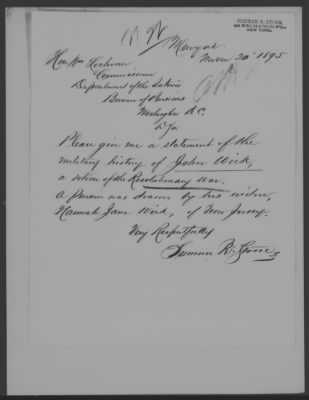 New York
Novem 20" 1895
Hon. Wm Lochren
Commissioner
Department of the Interior
Bureau of Pensions
Washington D.C.
Dr Sir
Please give me a statement of the
military history of John Work,
a soldier of the Revolutionary War.
A Pension was drawn by his widow,
Hannah Jane Work, of New Jersey.
Very Respectfully
Sumner R. Stone